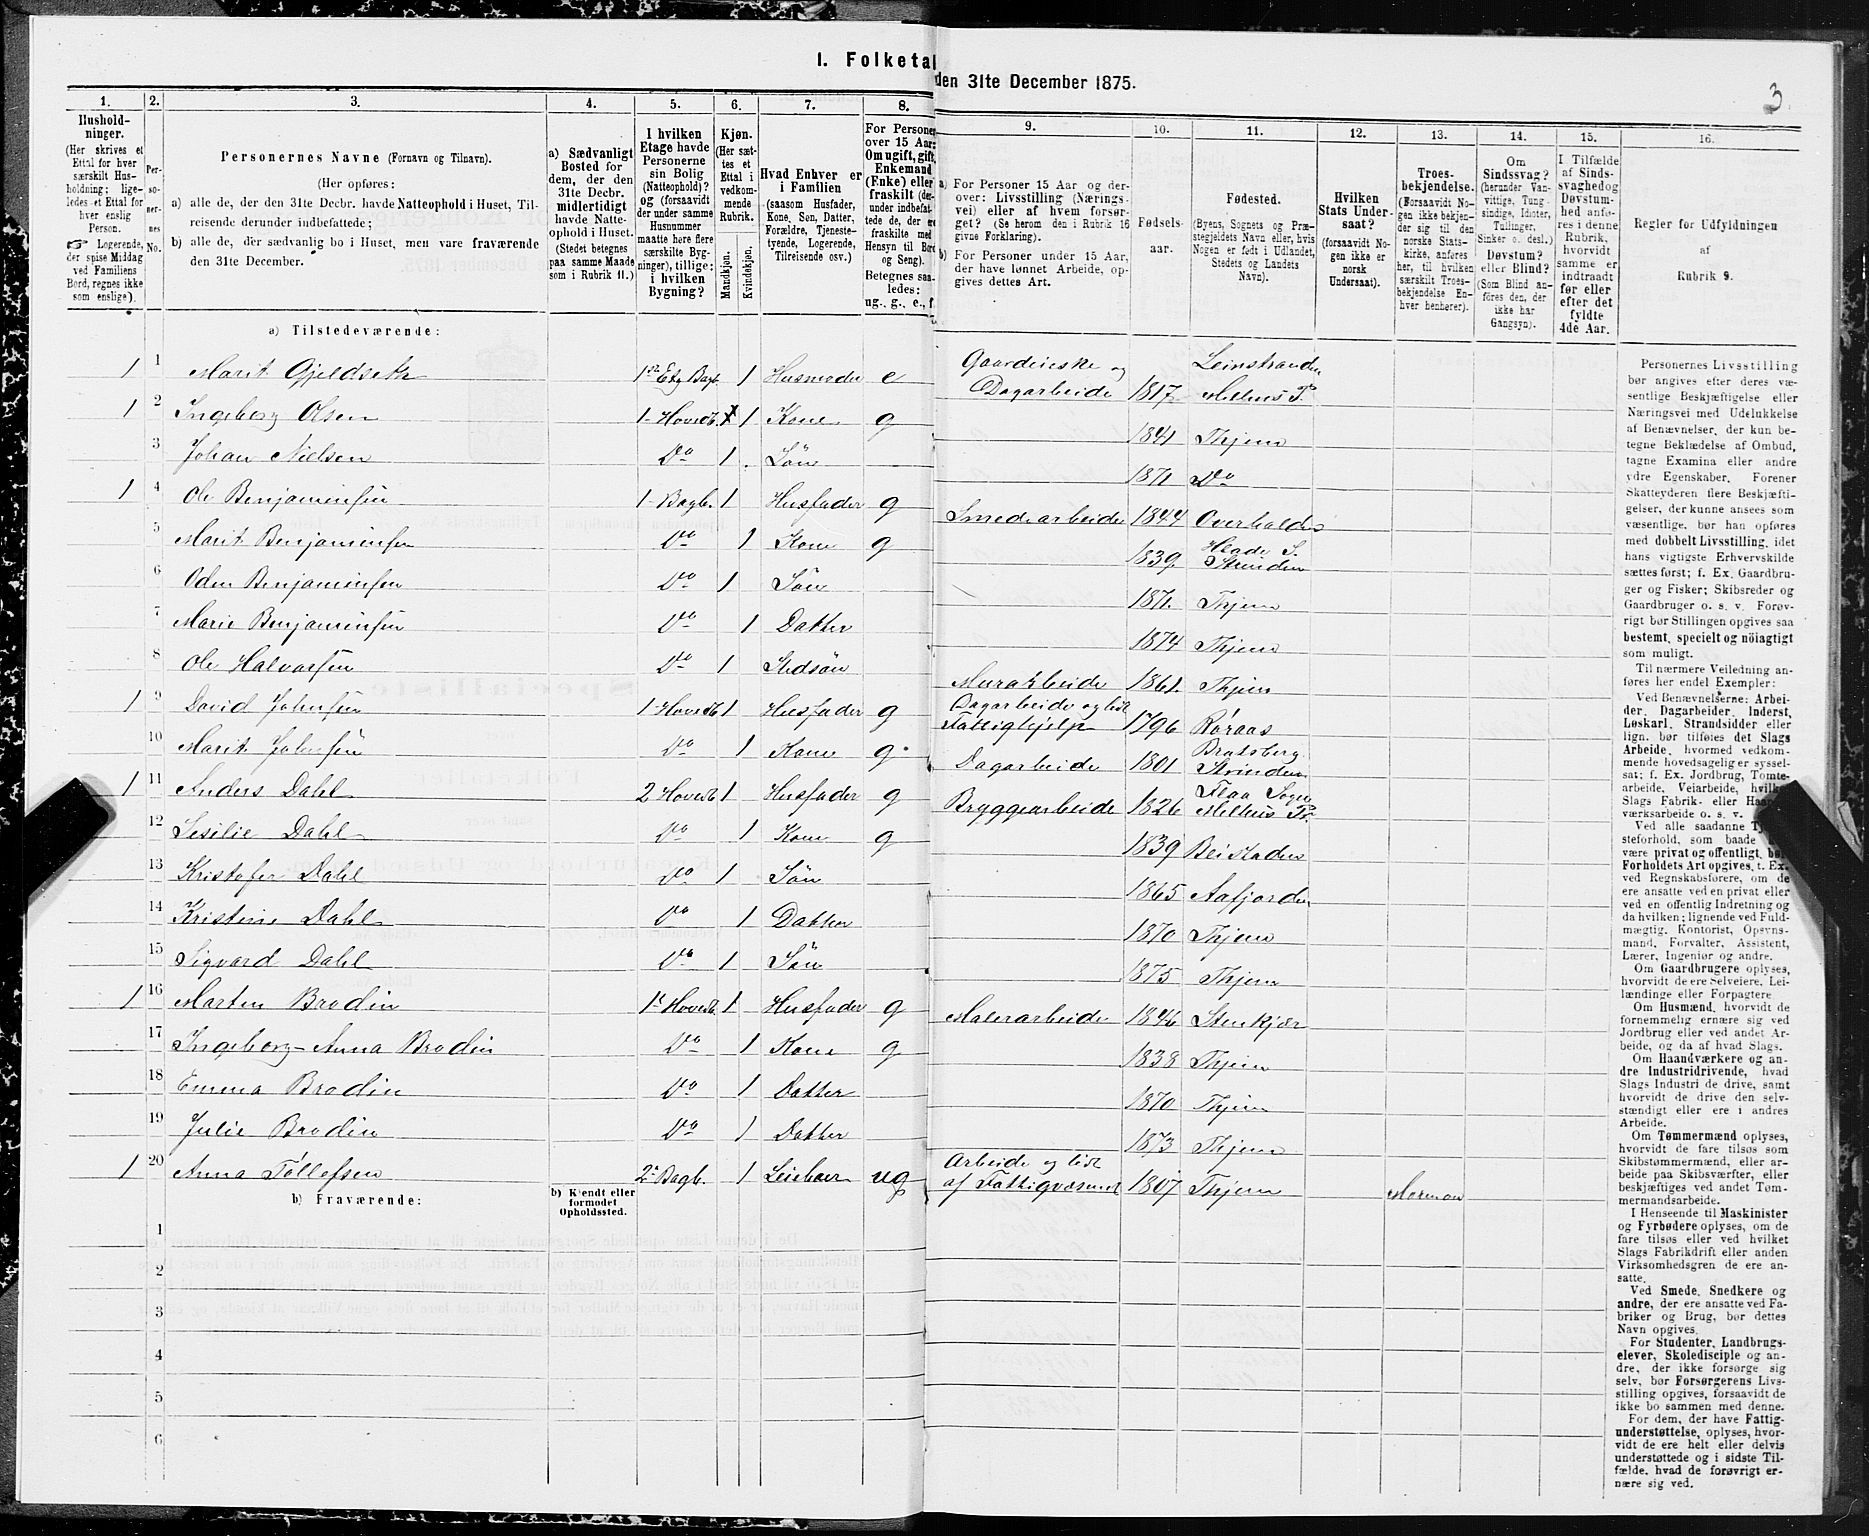 I. Folketal
den 31te December 1875.
3.
1.
Hushold-
ninger.
(Her skrives et
Ettal for hver
særskilt Hus-
holdning; lige-
ledes et Ettal for
hver enslig
Person.
☞ Logerende,
der spise Middag
ved Familiens
Bord, regnes ikke
som enslige).
2.
Per-
so-
ner-
nes
No.
3.
Personernes Navne (Fornavn og Tilnavn).
(Her opføres:
a) alle de, der den 31te Decbr. havde Natteophold i Huset, Til-
reisende derunder indbefattede;
b) alle de, der sædvanlig bo i Huset, men vare fraværende
den 31te December.
4.
a) Sædvanligt
Bosted for
dem, der den
31te Decbr.
midlertidigt
havde Natte-
ophold i Huset.
(Stedet betegnes
paa samme Maade
som i Rubrik 11.)
5.
I hvilken
Etage havde
Personerne
sin Bolig
(Natteophold)?
og (forsaavidt
der under samme
Husnummer
maatte høre flere
særskilte Byg-
ninger), tillige:
i hvilken
Bygning?
6.
Kjøn.
(Her sæt-
tes et
Ettal i
vedkom-
mende
Rubrik.
Mandkjøn.
Kvindekjøn.
7.
Hvad Enhver er
i Familien
(saasom Husfader,
Kone, Søn, Datter,
Forældre, Tjeneste-
tyende, Logerende,
Tilreisende osv.)
8.
For Personer
over 15 Aar:
Om ugift, gift,
Enkemand
(Enke) eller
fraskilt (der-
under indbefat-
tede de, der ere
fraskilte med
Hensyn til Bord
og Seng).
Betegnes saa-
ledes:
ug., g., e., f.
9.
a) For Personer 15 Aar og der-
over: Livsstilling (Nærings-
vei) eller af hvem forsør-
get? (Se herom den i Rubrik 16
givne Forklaring).
b) For Personer under 15 Aar,
der have lønnet Arbeide, op-
gives dettes Art.
10.
Fødsels-
aar.
11.
Fødested.
(Byens, Sognets og Præ-
stegjeldets Navn eller, hvis
Nogen er født i Udlandet,
Stedets og Landets
Navn).
12.
Hvilken
Stats Under-
saat?
(forsaavidt No-
gen ikke er
norsk
Undersaat).
13.
Troes-
bekjendelse.
(Forsaavidt No-
gen ikke bekjen-
der sig til den
norske Stats-
kirke, anføres
her, til hvilken
særskilt Troes-
bekjendelse En-
hver henhører).
14.
Om
Sindssvag?
(herunder Van-
vittige, Tung-
sindige, Idioter,
Tullinger,
Sinker o. desl.)
Døvstum?
eller Blind?
(Som Blind an-
føres den, der
ikke har
Gangsyn).
15.
I Tilfælde
af Sinds-
svaghed og
Døvstum-
hed anfø-
res i denne
Rubrik,
hvorvidt
samme er
indtraadt
før eller
efter det
fyldte
4de Aar.
16.
Regler for Udfyldningen
af
Rubrik 9.
a) Tilstedeværende:
1 1 Marit Gjeldseth 1ste Etg Bagb. 1 Husmoder e Gaardeierske og Dagarbeide 1817 Leinstranden Melhus P.
1 2 Ingeborg Olsen 1. Hovedb. 1 Kone g 1841 Thjem
3 Johan Nielsen Do 1 Søn 1871 Do
1 4 Ole Benjaminsen 1. Bagb. 1 Husfader g Smedearbeider 1844 Overhalden
5 Marit Benjaminsen Do 1 Kone g 1839 Hlade S. Strinden
6 Oden Benjaminsen Do 1 Søn 1871. Thjem
7 Marie Benjaminsen Do 1 Datter 1874 Thjem
8 Ole Halvorsen Do 1 Stedsøn Murarbeide 1861. Thjem
1 9 David Johnsen 1. Hovedb 1 Husfader g Dagarbeide og lidt Fattighjelp 1796 Røraas
10 Marit Johnsen Do 1 Kone g. Dagarbeide 1801 Bratsberg Strinden
1 11 Anders Dahl 2 Hovedb 1 Husfader g Bryggearbeide 1826 Flaa Sogn Melhus P.
12 Sesilie Dahl Do 1 Kone g 1839 Beistaden
13 Kristofer Dahl Do 1 Søn 1865 Aafjorden
14 Kristine Dahl Do 1 Datter 1870 Thjem
15 Sigvard Dahl Do 1 Søn 1875 Thjem
1 16 Marten Brodin 1. Hovedb. 1 Husfader g Malerarbeide 1846 Stenkjær
17 Ingeborg-Anna Brodin Do 1 Kone g 1838 Thjem
18 Emma Brodin Do 1 Datter 1870 Thjem
19 Julie Brodin Do 1 Datter 1873 Thjem
1 20 Anna Tøllefsen 2. Bagb. 1 ug Arbeide og lidt af Fattigvæsenet 1807 Thjem Mormon
b) Fraværende:
b) Kjendt eller
formodet
Opholdssted.
1
2
3
4
5
6
Personernes Livsstilling
bør angives efter deres væ-
sentlige Beskjæftigelse eller
Næringsvei med Udelukkelse
af Benævnelser, der kun be-
tegne Beklædelse af Ombud,
tagne Examina eller andre
ydre Egenskaber. Forener
Skatteyderen flere Beskjæfti-
gelser, der kunne ansees som
væsentlige, bør han opføres
med dobbelt Livsstilling, idet
hans vigtigste Erhvervskilde
sættes først; f. Ex. Gaardbru-
ger og Fisker; Skibsreder og
Gaardbruger o. s. v. Forøv-
rigt bør Stillingen opgives saa
bestemt, specielt og nöiagtigt
som muligt.
Til nærmere Veiledning an-
føres her endel Exempler:
Ved Benævnelserne: Arbei-
der, Dagarbeider, Inderst,
Løskarl, Strandsidder eller
lign. bør tilføres det Slags
Arbeide, hvormed vedkom-
mende hovedsagelig er syssel-
sat; f. Ex. Jordbrug, Tomte-
arbeide, Veiarbeide, hvilket
Slags Fabrik- eller Haand-
værksarbeide o. s. v.
Ved alle saadanne
steforhold, som baade
være privat og offentligt, bør
Forholdets Art opgives, t. Ex.
ved Regnskabsførere, om de
ere ansatte ved en privat eller
ved en offentlig Indretning og
da hvilken; lignende ved Fuld-
mægtig, Kontorist, Opsyns-
mand, Forvalter, Assistent,
Lærer, Ingeniør og andre.
Om Gaardbrugere oplyses,
hvorvidt de ere Selveiere, Lei-
lændinge eller Forpagtere
Om Husmænd, hvorvidt de
fornemmelig ernære sig ved
Jordbrug eller ved andet Ar-
beide, og da af hvad Slags.
Om Haandværkere og an-
dre Industridrivende, hvad
Slags Industri de drive, samt
hvorvidt de drive den selv-
stændigt eller ere i andres
Arbeide.
Om Tømmermænd oplyses,
hvorvidt de fare tilsøs som
Skibstømmermænd, eller ar-
beide paa Skibsværfter, eller
beskjæftiges ved andet Tøm-
mermandsarbeide.
I Henseende til Maskinister
og Fyrbødere oplyses, om de
fare tilsøs eller ved hvilket
Slags Fabrikdrift eller anden
Virksomhedsgren de ere an-
satte.
Ved Smede, Snedkere og
andre, der ere ansatte ved Fa-
briker og Brug, bør dettes
Navn opgives.
For Studenter, Landbrugs-
elever, Skoledisciple og an-
dre, der ikke forsørge sig
selv, bør Forsørgerens Livs-
stilling opgives, forsaavidt de
ikke bo sammen med denne.
For dem, der have Fattig-
understøttelse, oplyses, hvor-
vidt de ere helt eller delvis
understøttede og i sidste Til-
fælde, hvad de forøvrigt er-
nære sig ved.